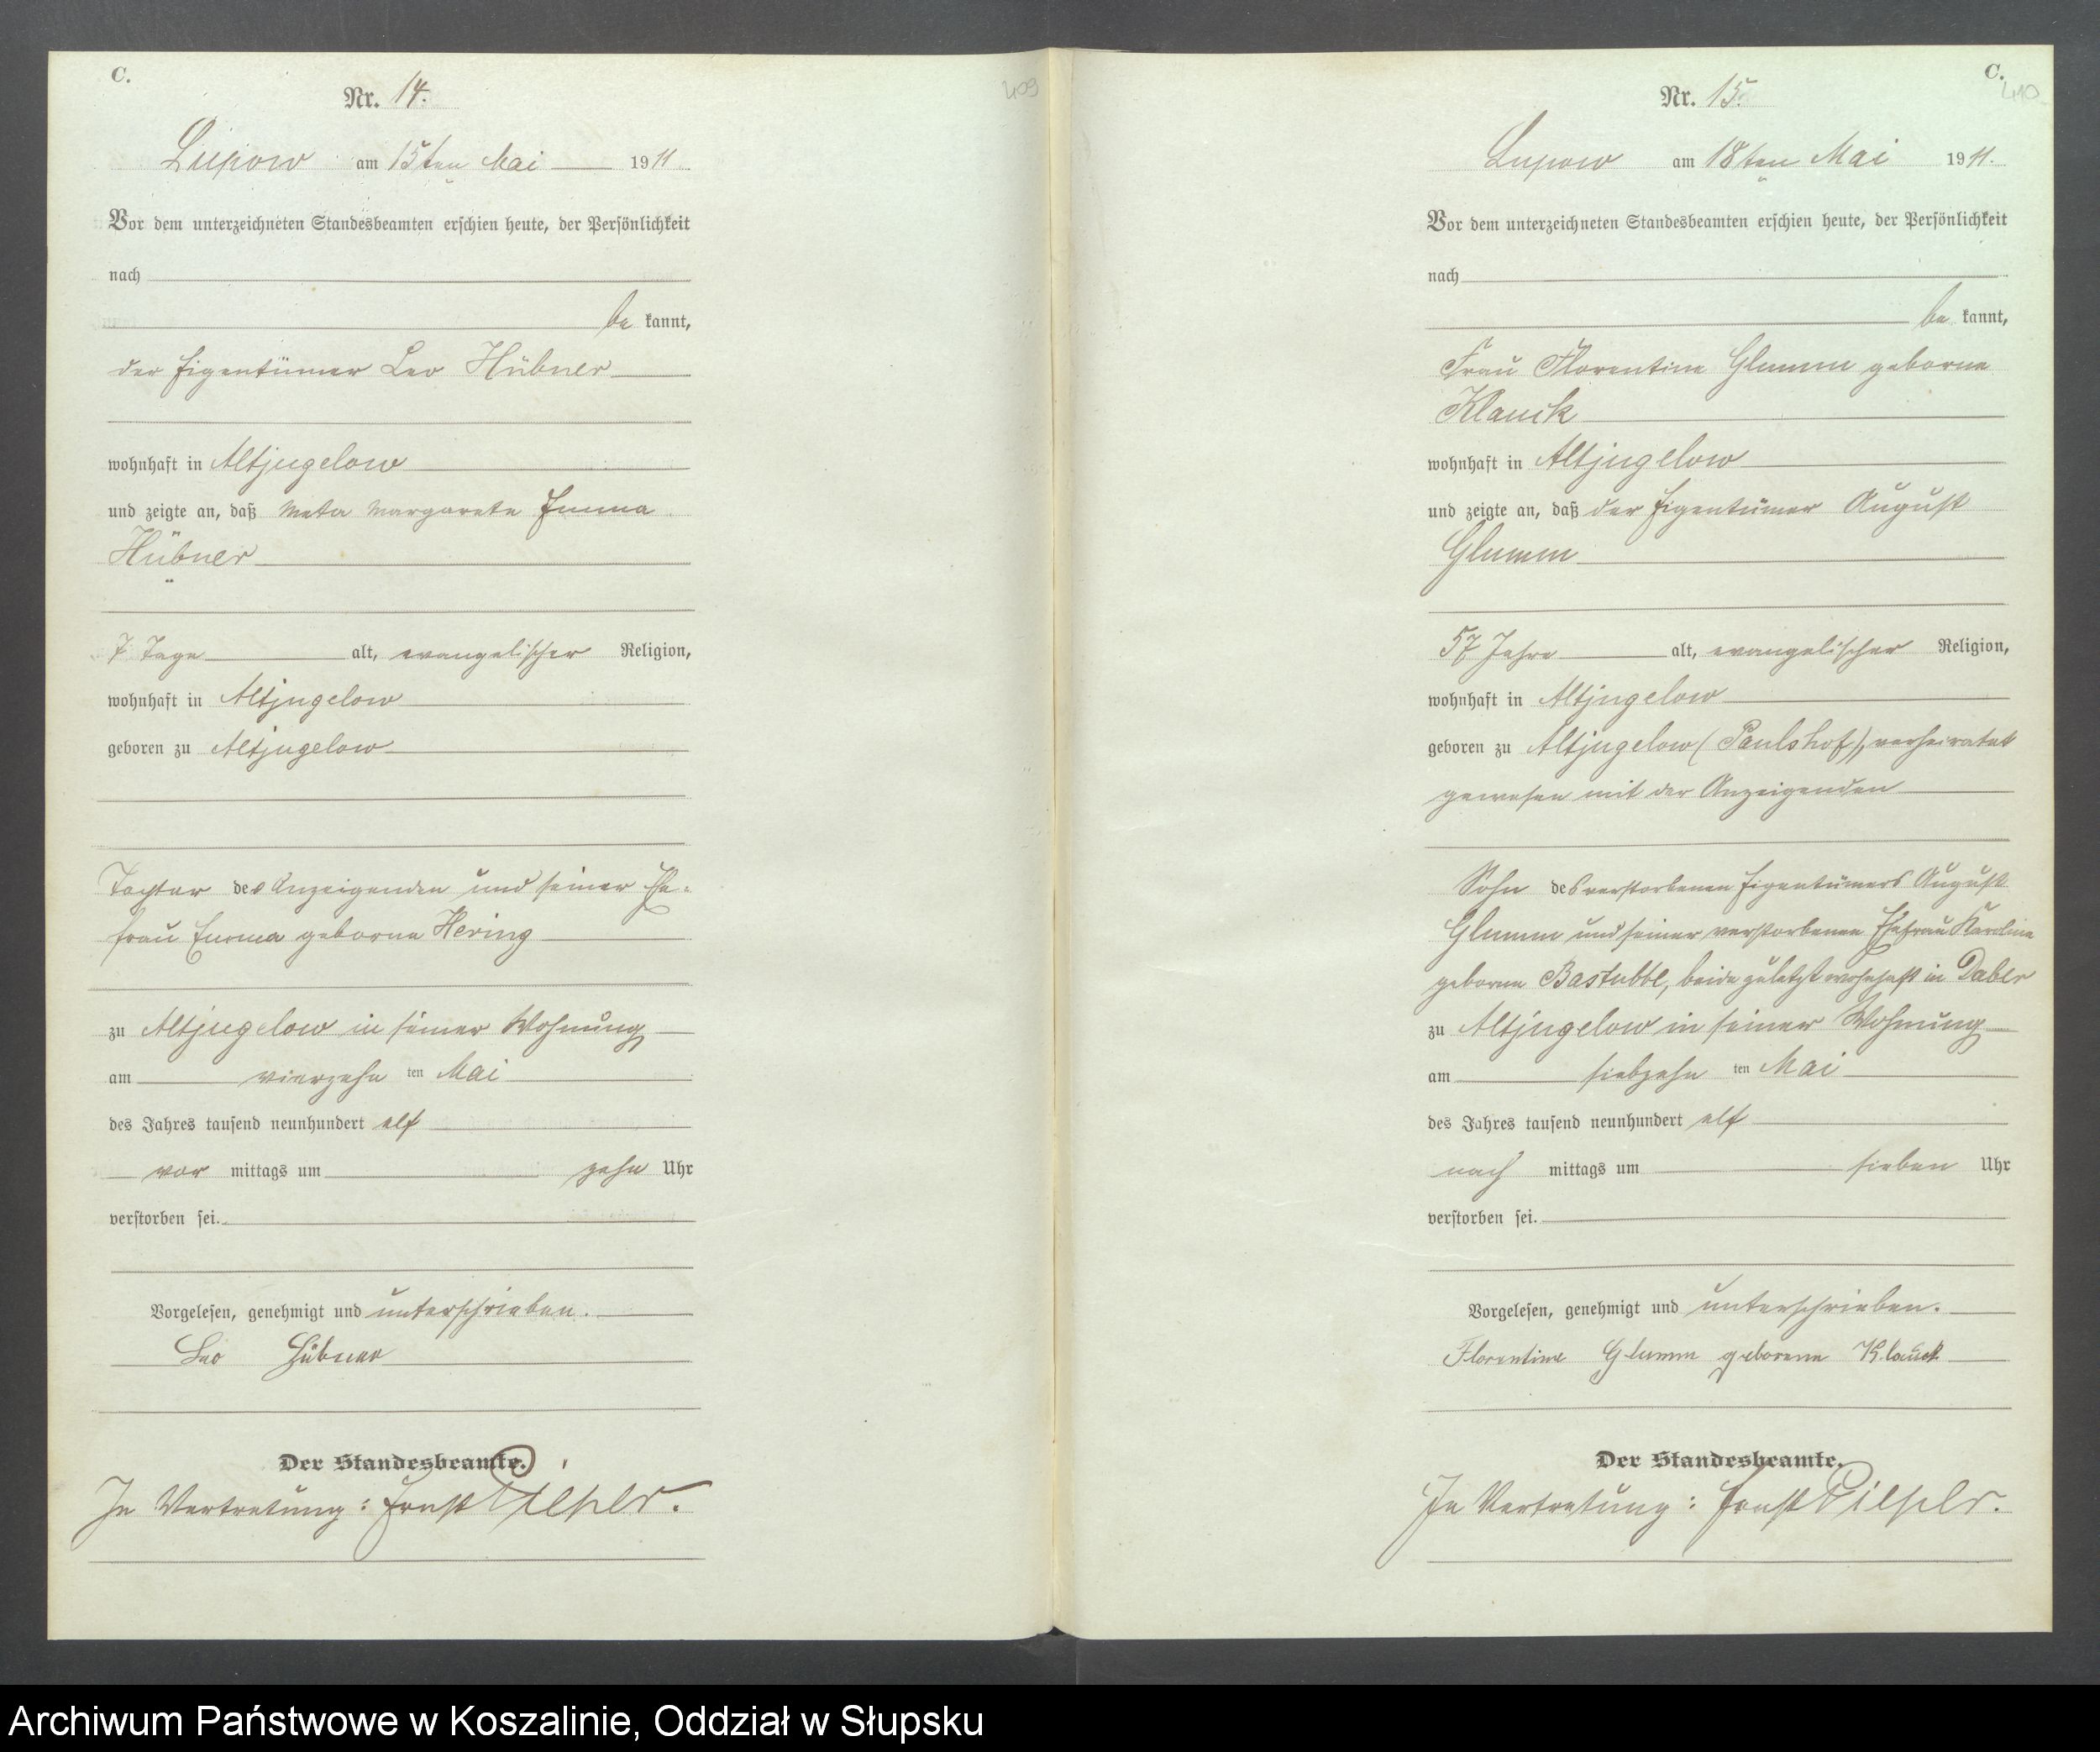 C.
Nr. 14.
409
Lupow am 15ten Mai 1911
Vor dem unterzeichneten Standesbeamten erschien heute, der Persönlichkeit
nach
be kannt,
der Eigentümer Leo Hübner
wohnhaft in Altjugelow
und zeigte an, daß Meta Margarete Emma
Hübner
7 Tage alt, evangelischer Religion,
wohnhaft in Altjugelow
geboren zu Altjugelow
Tochter des Anzeigenden und seiner Ehe-
frau Emma geborne Hering
zu Altjugelow in seiner Wohnung
am vierzehn ten Mai
des Jahres tausend neunhundert elf
vor mittags um zehn Uhr
verstorben sei.
Vorgelesen, genehmigt und unterschrieben.
Leo Hübner
Der Standesbeamte.
In Vertretung: Ernst
C.
410
Nr. 15.
Lupow am 18ten Mai 1911.
Vor dem unterzeichneten Standesbeamten erschien heute, der Persönlichkeit
nach
be kannt,
Frau Florentine Glumm geborne
Klauck
wohnhaft in Altjugelow
und zeigte an, daß der Eigentümer August
Glumm
57 Jahre alt, evangelischer Religion,
wohnhaft in Altjugelow
geboren zu Altjugelow (Paulshof), verheiratet
gewesen mit der Anzeigenden
Sohn des verstorbenen Eigentümers August
Glumm und seiner verstorbenen Ehefrau Karoline
geborne Bastubbe, beide zuletzt wohnhaft in Daber
zu Altjugelow in seiner Wohnung
am siebzehn ten Mai
des Jahres tausend neunhundert elf
nach mittags um sieben Uhr
verstorben sei.
Vorgelesen, genehmigt und unterschrieben.
Florentine Glumm geborene Klauck
Der Standesbeamte.
In Vertretung: Ernst
Archiwum Państwowe w Koszalinie, Oddział w Słupsku